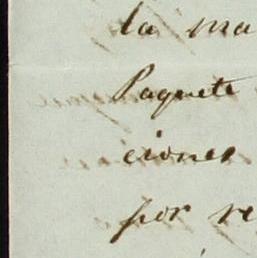 la ma
Paquete
ciones
por re